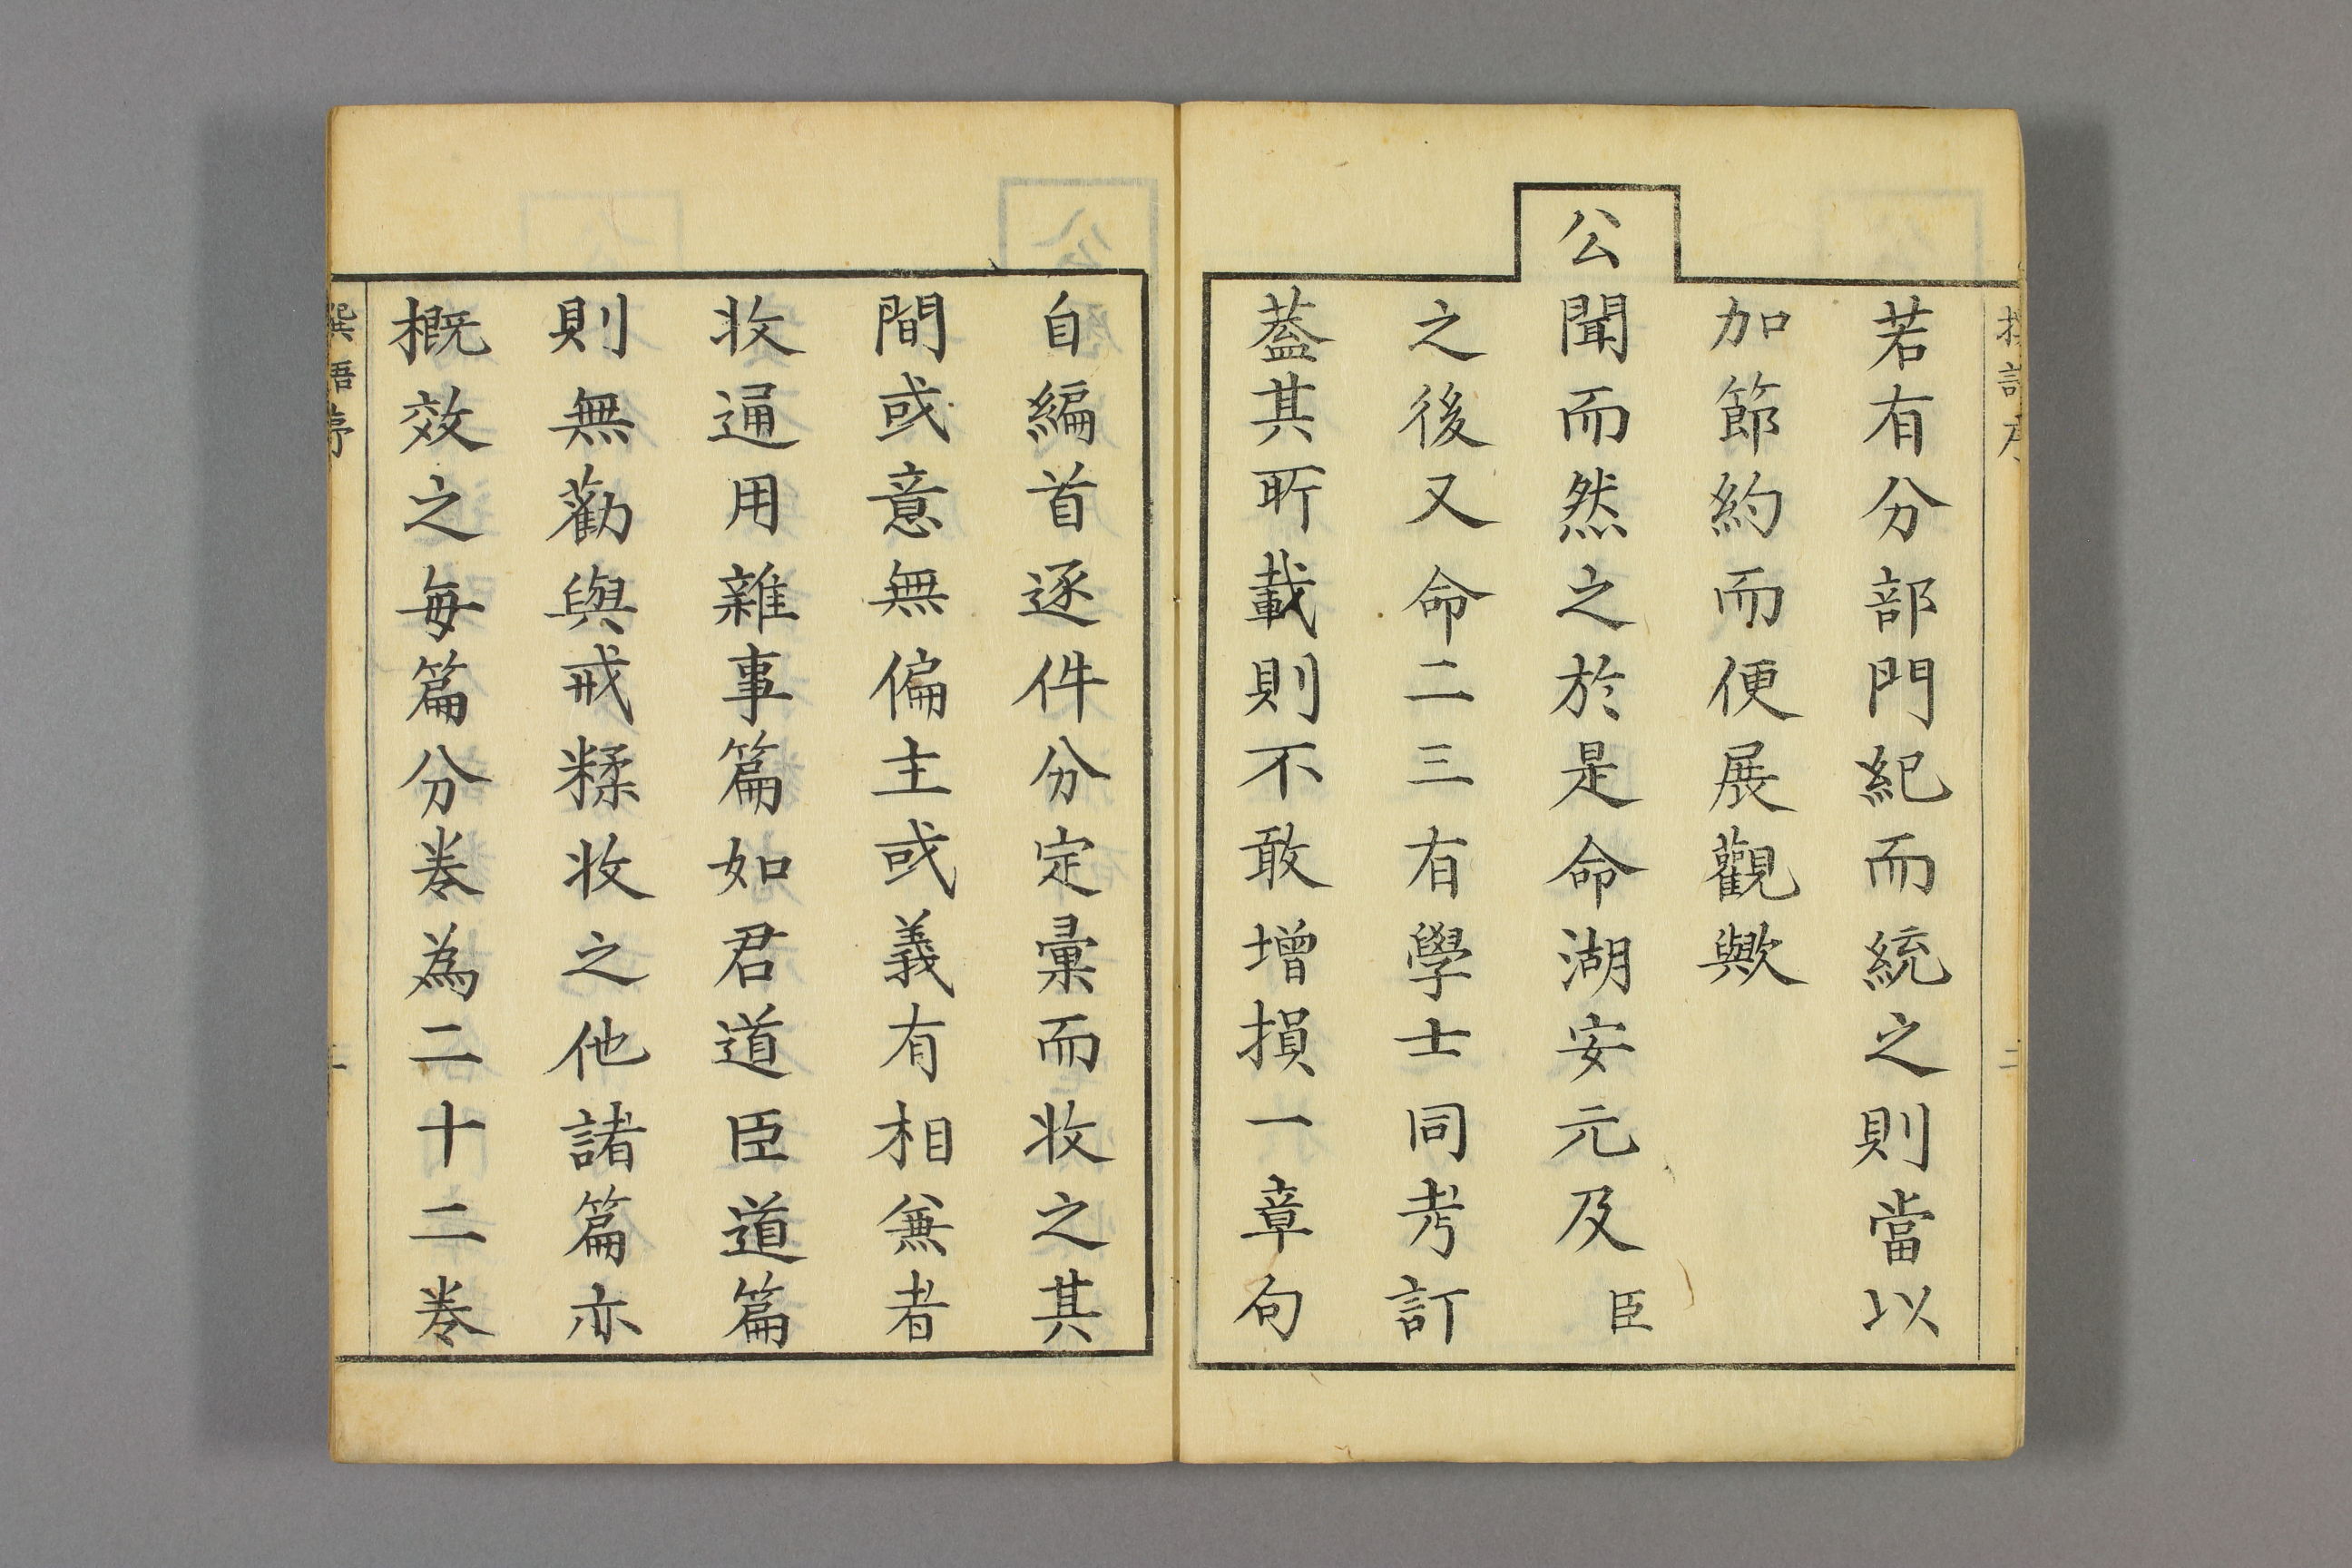 若有分部門紀而統之則當以
加節約而便展觀歟
公聞而然之於是命湖安元及臣
之後又命二三有學士同考訂
葢其所載則不敢增損一章句
自編首逐件分定彙而收之其
間或意無偏主或義有相兼者
收通用雜事篇如君道臣道篇
則無勸與戒糅收之他諸篇亦
概效之每篇分卷為二十二卷